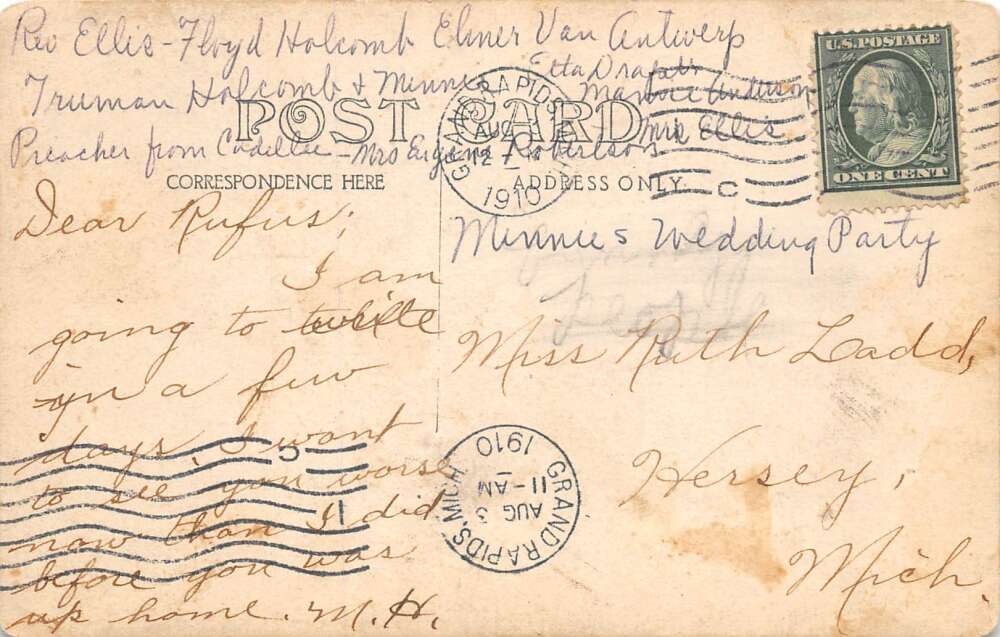 Rev Ellis - Floyd Holcomb Elmer Van Antwerp
Truman Holcomb & Minnie Etta
Mrs Ellis
Preacher from Cadillac - Mrs Robertson
U.S. POSTAGE
ONE CENT
POST CARD
CORRESPONDENCE HERE
ADDRESS ONLY
GRAND RAPIDS
AUG
12
1910
C
Minnies Wedding Party
Dear Rufus;
I am
going to write
in a few
days, I want
to see you worse
now than I did
before you was
up home. M.H.
Miss Ruth Ladd,
Hersey,
Mich.
GRAND RAPIDS, MICH
AUG 3
11-AM
1910